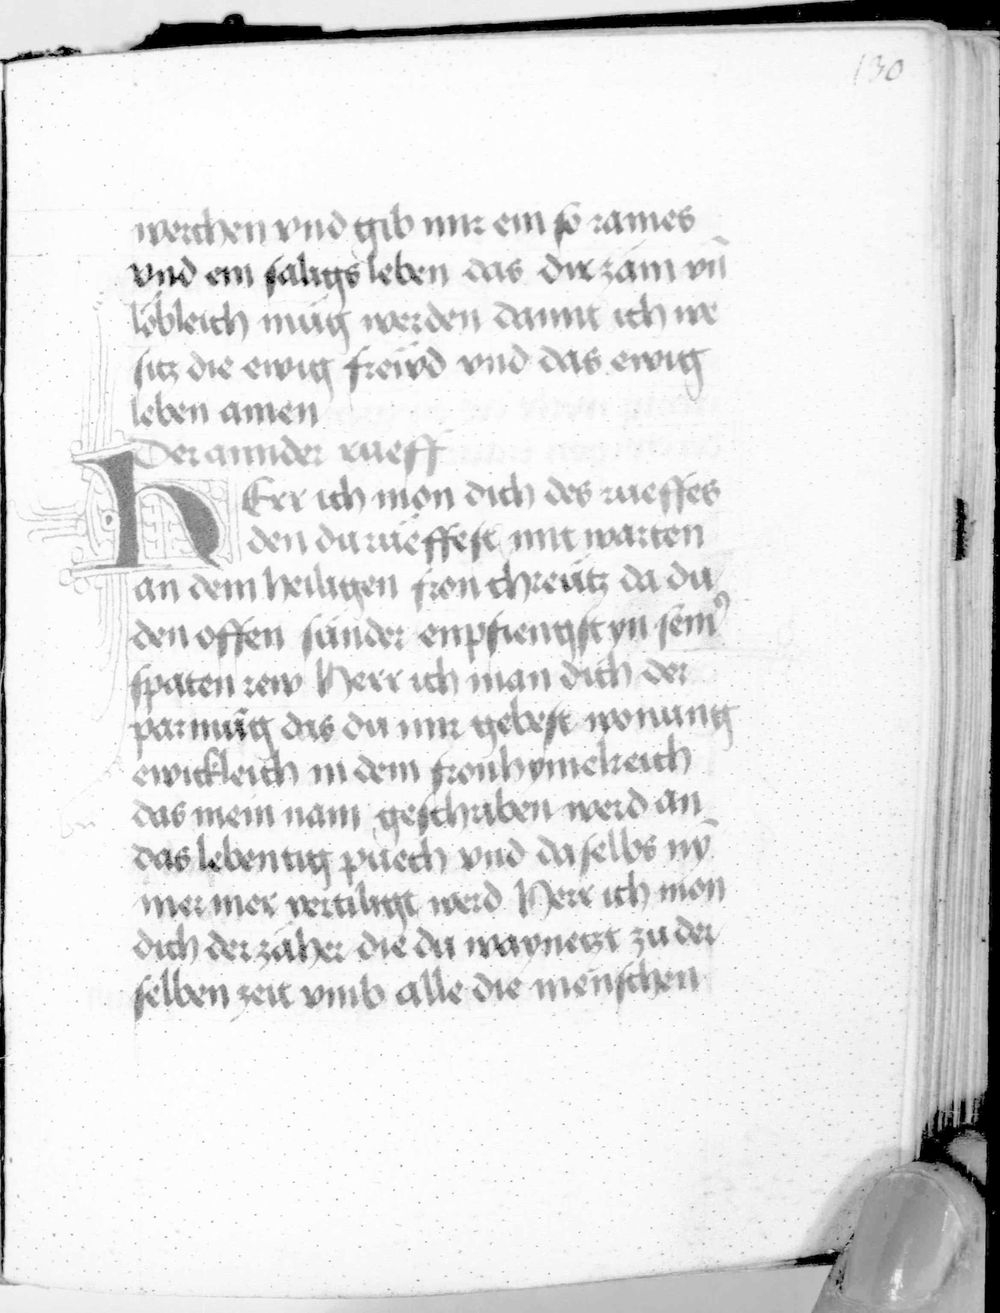 130
werchen vnd gib mir ein so raines
vnd ein säligs leben das dir zäm vn̄
löbleich müg werden damit ich we
sitz die ewig freẅd vnd das ewig
leben amen
Der annder rueff
HErr ich mon dich des rueffes
den du rüeffest mit warten
an dem heiligen fron chreütz da du
den offen sünder enpfiengst yn seinꝰ
spaten rew Herr ich man dich der
parmüg das du mir gebest wonung
ewickleich in dem fronhymelreich
das mein nam geschriben werd an
das lebentig püech vnd daselbs nȳ
mer mer vertiligt werd Herr ich mon
dich der zäher die du waynetzt zu der
selben zeit vmb alle die menschen